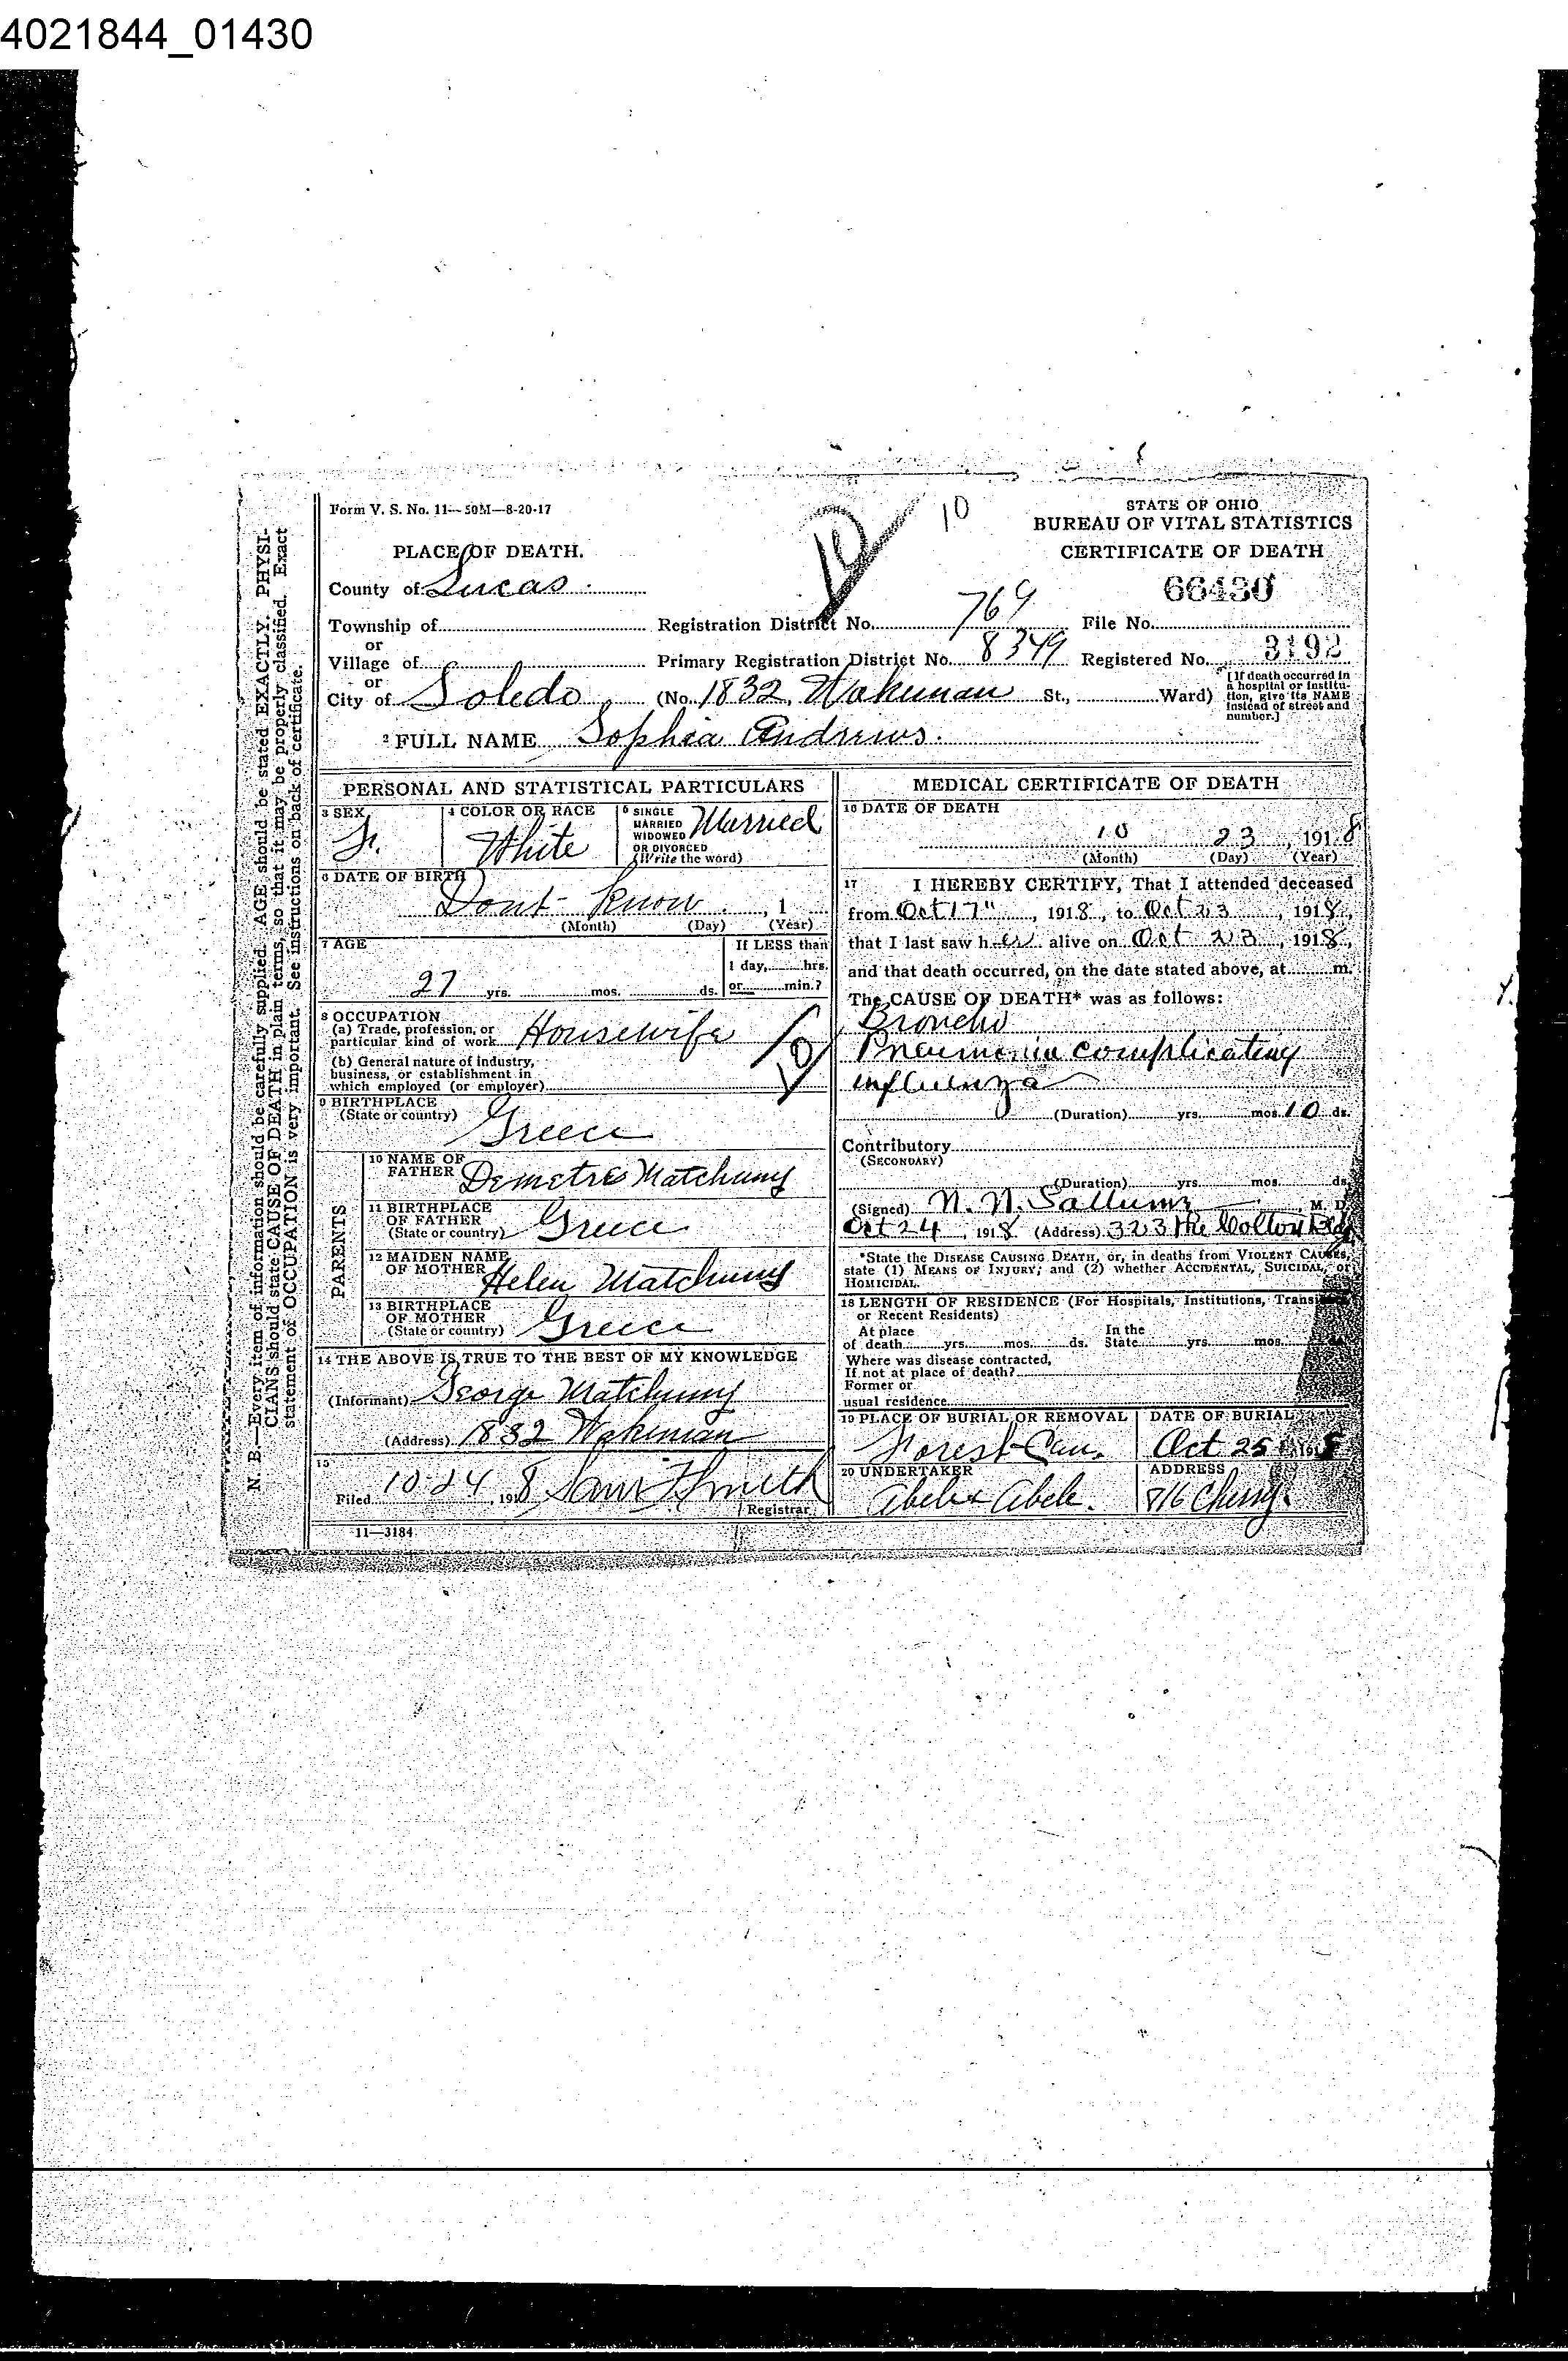 4021844_01430
Form V. S. No. 11—50M—8-20-17
10
STATE OF OHIO
BUREAU OF VITAL STATISTICS
PLACE OF DEATH.
CERTIFICATE OF DEATH
County of Lucas
66430
Township of Registration District No. 769 File No.
or
Village of Primary Registration District No. 8349 Registered No. 3192
or
City of Toledo (No. 1832 Wakeman St., Ward)
[If death occurred in a hospital or institution, give its NAME instead of street and number.]
2 FULL NAME Sophia Andrews.
PERSONAL AND STATISTICAL PARTICULARS
3 SEX
F.
4 COLOR OR RACE
White
5 SINGLE MARRIED WIDOWED OR DIVORCED (Write the word)
Married
6 DATE OF BIRTH
Dont Know , 1
(Month) (Day) (Year)
7 AGE
27 yrs. mos. ds.
If LESS than
1 day, hrs.
or min.?
8 OCCUPATION
(a) Trade, profession, or
particular kind of work Housewife
(b) General nature of industry,
business, or establishment in
which employed (or employer)
9 BIRTHPLACE
(State or country)
Greece
PARENTS
10 NAME OF
FATHER Demetre Matchuny
11 BIRTHPLACE
OF FATHER
(State or country) Greece
12 MAIDEN NAME
OF MOTHER Helen Matchuny
13 BIRTHPLACE
OF MOTHER
(State or country) Greece
14 THE ABOVE IS TRUE TO THE BEST OF MY KNOWLEDGE
(Informant) George Matchuny
(Address) 1832 Wakeman
15
Filed 10 24, 1918
Registrar
11—3184
MEDICAL CERTIFICATE OF DEATH
16 DATE OF DEATH
10 23, 1918
(Month) (Day) (Year)
17 I HEREBY CERTIFY, That I attended deceased
from Oct 17", 1918, to Oct 23, 1918,
that I last saw her alive on Oct 23, 1918,
and that death occurred, on the date stated above, at m.
The CAUSE OF DEATH* was as follows:
Broncho
Pneumonia complicating
influenza
(Duration) yrs. mos. 10 ds.
Contributory
(SECONDARY)
(Duration) yrs. mos. ds.
(Signed) N. N. Sallume M. D.
Oct 24, 1918 (Address) 323 The Colton Bldg
*State the DISEASE CAUSING DEATH, or, in deaths from VIOLENT CAUSES,
state (1) MEANS OF INJURY; and (2) whether ACCIDENTAL, SUICIDAL, or
HOMICIDAL.
18 LENGTH OF RESIDENCE (For Hospitals, Institutions, Transients,
or Recent Residents)
At place of death yrs. mos. ds. In the State yrs. mos. ds.
Where was disease contracted,
If not at place of death?
Former or
usual residence
19 PLACE OF BURIAL OR REMOVAL
Forest Cem.
DATE OF BURIAL
Oct 25 1918
20 UNDERTAKER
Abele & Abele.
ADDRESS
816 Cherry.
N. B.—Every item of information should be carefully supplied. AGE should be stated EXACTLY. PHYSI-
CIANS should state CAUSE OF DEATH in plain terms, so that it may be properly classified. Exact
statement of OCCUPATION is very important. See instructions on back of certificate.